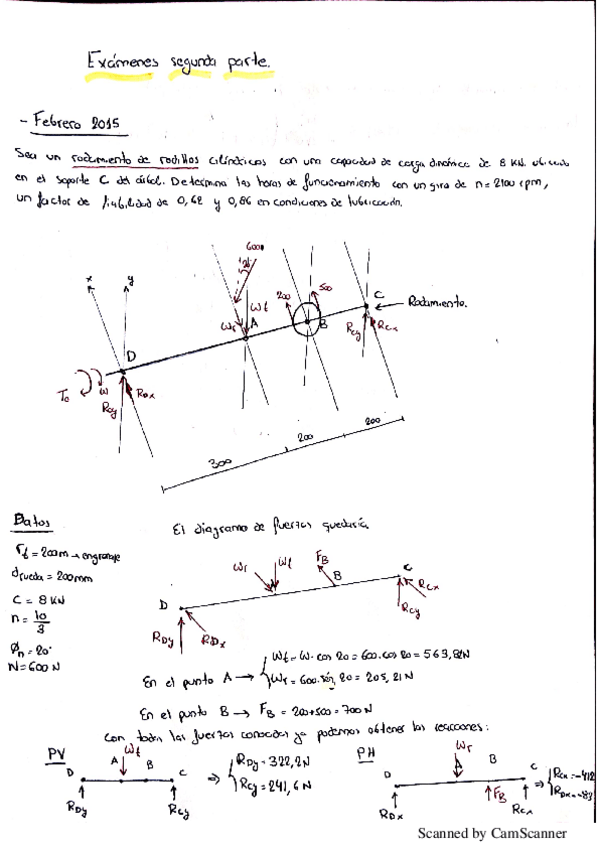 Exámenes segunda parte.
- Febrero 2015
Sea un rodamiento de rodillos cilíndricos con una capacidad de carga dinámica de 8 KN ubicado
en el soporte C del árbol. Determina las horas de funcionamiento con un giro de n=2100 rpm,
un factor de fiabilidad de 0,62 y 0,86 en condiciones de lubricación.
x
y
600N
Wt
Wr
A
200
500
B
C
Rodamiento.
Rcy
Rcx
D
Tc
W
RDx
Rcy
300
200
200
Datos
El diagrama de fuerzas quedaría
rt = 200m → engranaje
drueda = 200mm
C = 8 KN
n = 10/3
Øn = 20°
N = 600 N
Wr
Wt
FB
B
C
Rcx
Rcy
D
RDy
RDx
En el punto A → Wt = W. cos 20 = 600.cos 20 = 563,82N
Wr = 600.sen 20 = 205,21N
En el punto B → FB = 200+500 = 700 N
Con todas las fuerzas conocidas ya podemos obtener las reacciones:
PV
Wt
D
A
B
C
RDy
Rcy
⇒ RDy = 322,2N
Rcy = 241,6 N
PH
Wr
D
A
B
C
RDx
FB
Rcx
⇒ Rcx = -412
RDx = -83
Scanned by CamScanner